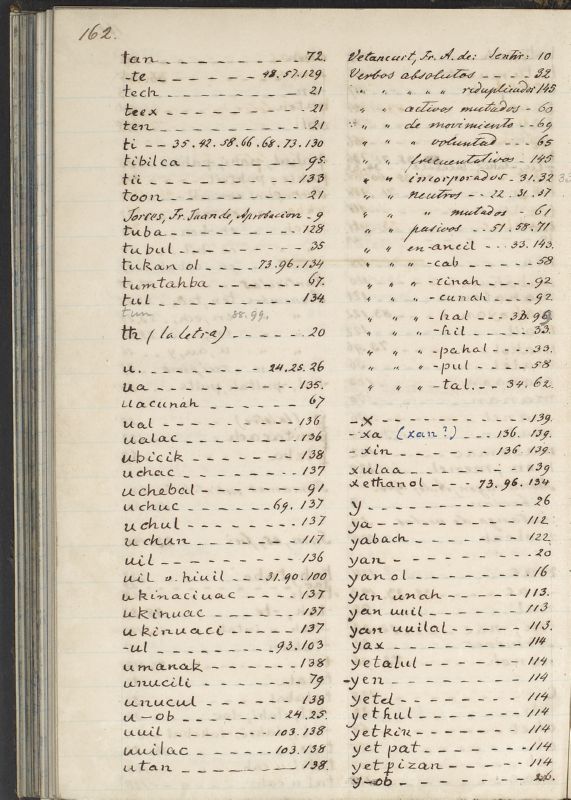 162.
tan - - - 72.
-te - - - 48.57.129
tech - - - 21
teex - - - 21
ten - - - 21
ti - - 35.42.58.66.68.73.130
tibilca - - - 95.
tii - - - 133
toon - - - 21
Torres, Fr. Juan de, Aprobacion - 9
tuba - - - 128
tubul - - - 35
tukan ol - - - 73.96.134
tumtahba - - - 67.
tul - - - 134
tun 88.99.
th (la letra) - - - 20
u. - - - 24.25.26
ua - - - 135.
uacunah - - - 67
ual - - - 136
ualac - - - 136
ubicik - - - 138
uchac - - - 137
uchebal - - - 91
uchuc - - - 69.137
uchul - - - 137
uchun - - - 117
uil - - - 136
uil o. hiuil - - - 31.90.100
ukinaciuac - - - 137
ukinuac - - - 137
ukinuaci - - - 137
-ul - - - 93.103
umanak - - - 138
unucili - - - 79
unucul - - - 138
u-ob - - - 24.25.
uuil - - - 103.138
uuilac - - - 103.138
utan - - - 138
Vetancurt, Fr. A. de: Sentir: 10
Verbos absolutos - - - 32
" " " " reduplicados 145
" " activos mutados - 60
" " de movimiento - - 69
" " " voluntad - - 65
" " frecuentativos - 145
" " incorporados - 31.32
" " neutros - - 22.31.57
" " " mutados - 61
" " pasivos - - 51.58.71
" " en -ancil - - 33.143.
" " " -cab - - - 58
" " " -cinah - - - 92
" " " -cunah - - - 92
" " " -hal - - - 33.96
" " " -hil - - - 33.
" " " -pahal - - - 33.
" " " -pul - - - 58
" " " -tal - - - 34.62.
-x - - - 139.
-xa (xan?) - - - 136.139.
-xin - - - 136.139.
xulaa - - - 139
xethanol - - - 73.96.134
y - - - 26
ya - - - 112
yabach - - - 122
yan - - - 20
yan ol - - - 16
yan unah - - - 113.
yan uuil - - - 113
yan uuilal - - - 113.
yax - - - 114
yetalul - - - 114
-yen - - - 114
yetel - - - 114
yethul - - - 114
yetkin - - - 114
yet pat - - - 114
yet pizan - - - 114
y-ob - - - 26.